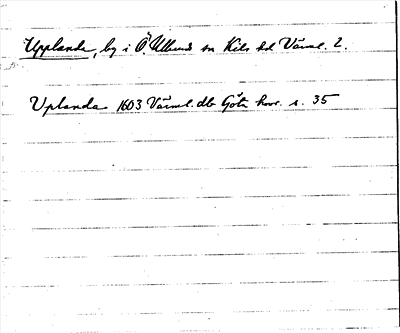 Upplanda, by i Ö Ullerud sn Kils hd Värml. l.
Uplanda 1603 Värml. db Göta hovr. s. 35